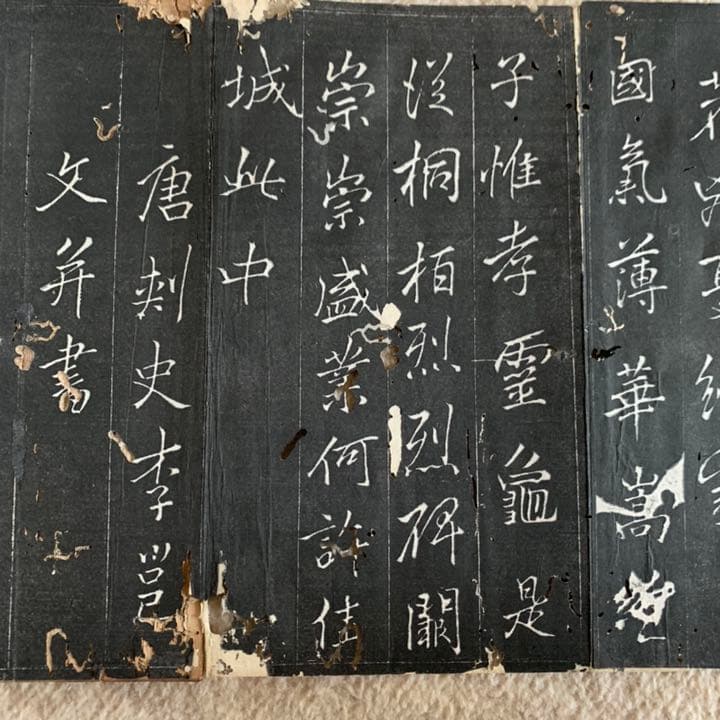 國氣薄華嵩
子惟孝靈龜是
從桐柏烈烈碑闕
崇崇盛業何許佳
城此中
唐刺史李邕
文并書